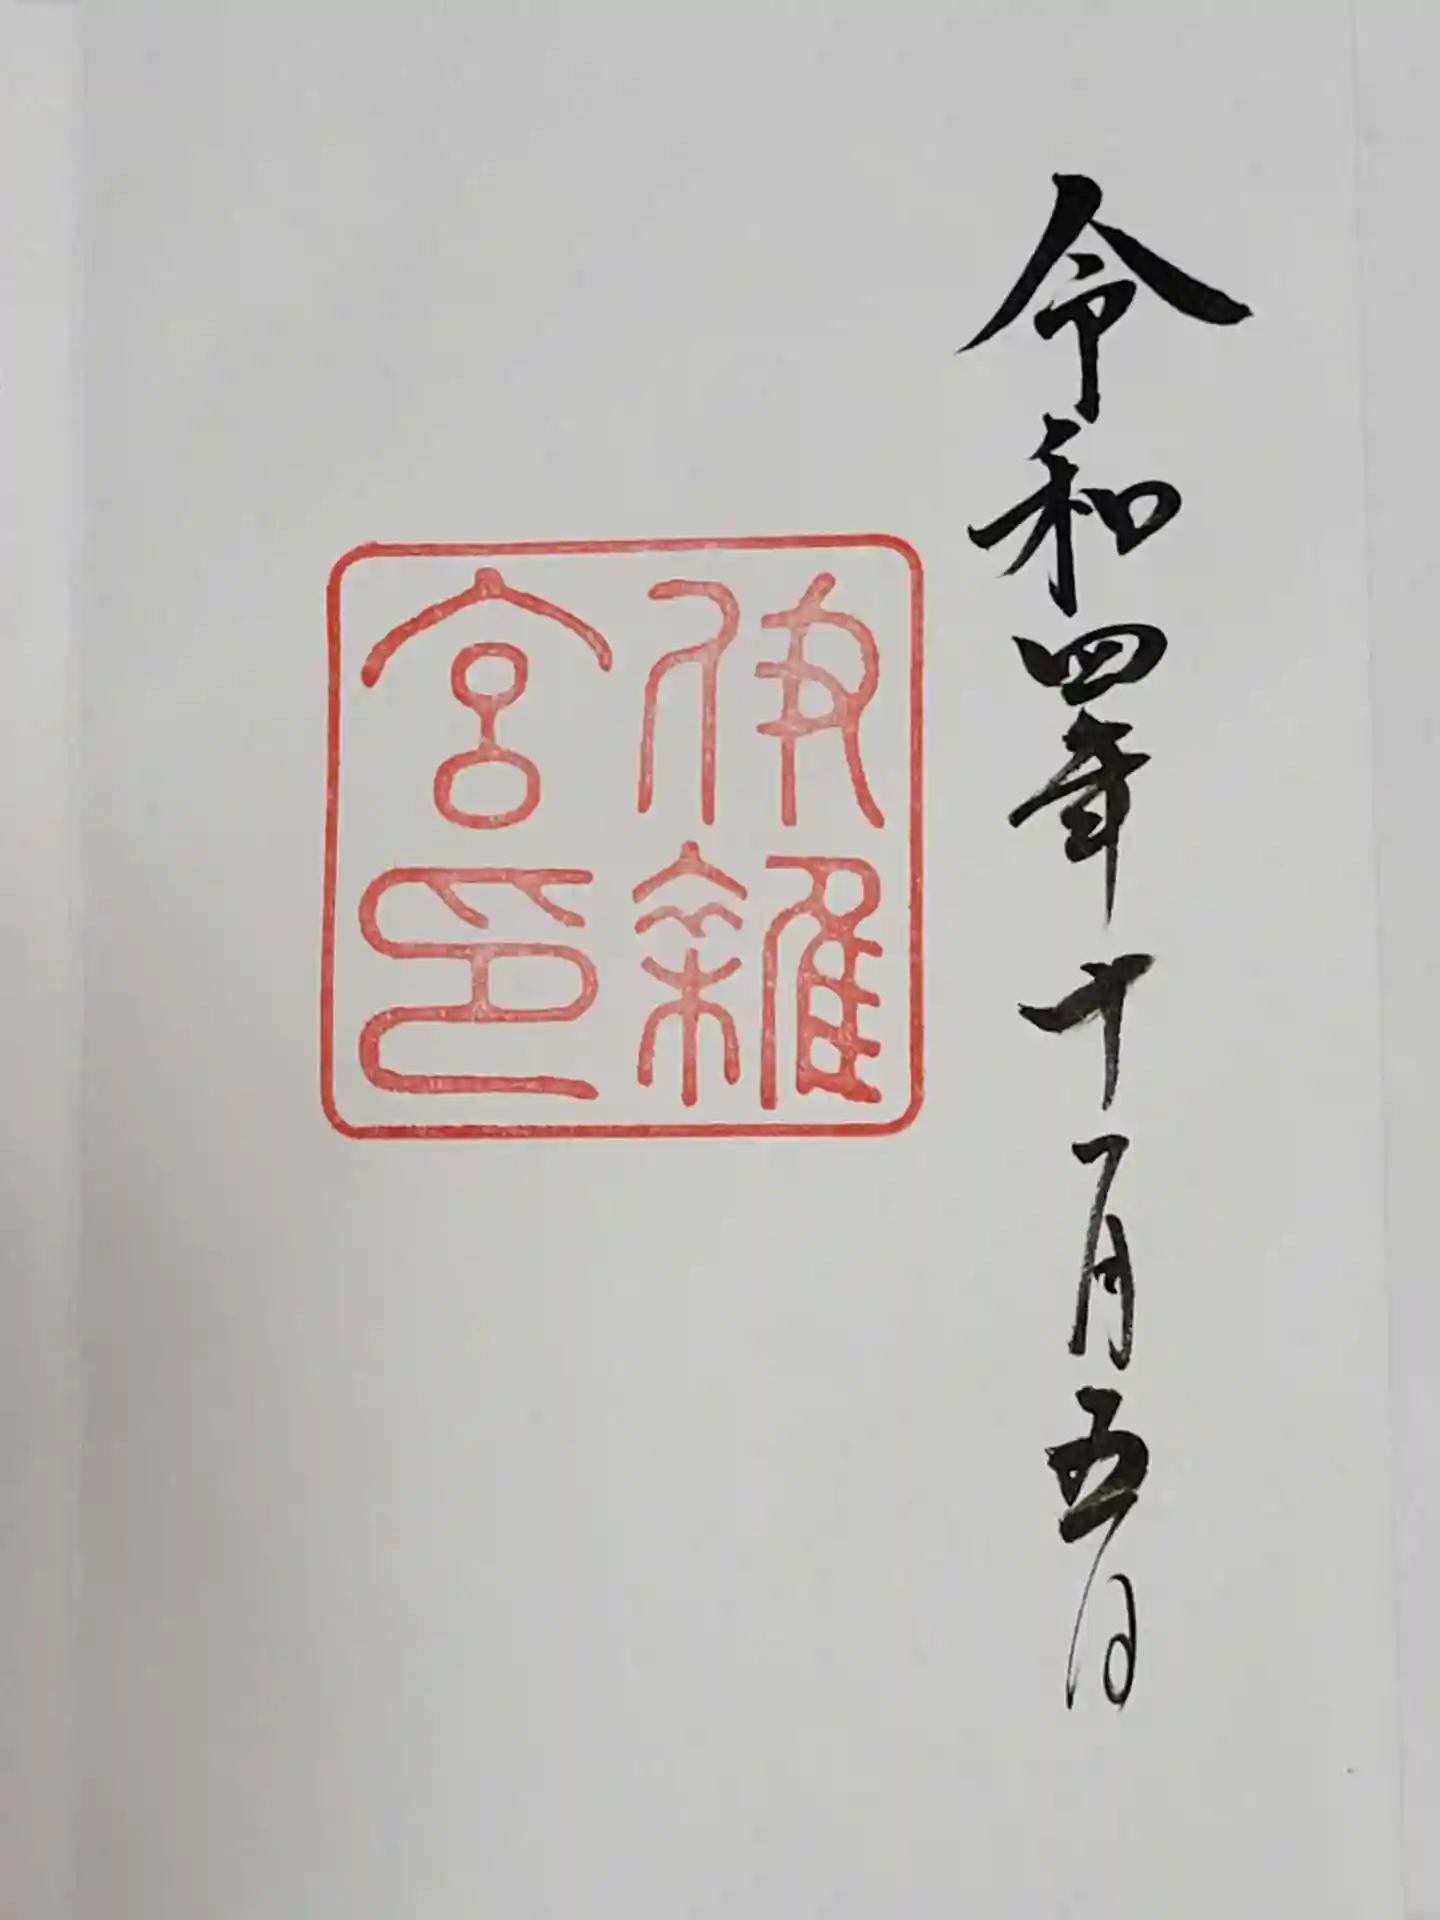 令和四年十月五日
伊雜
宮印